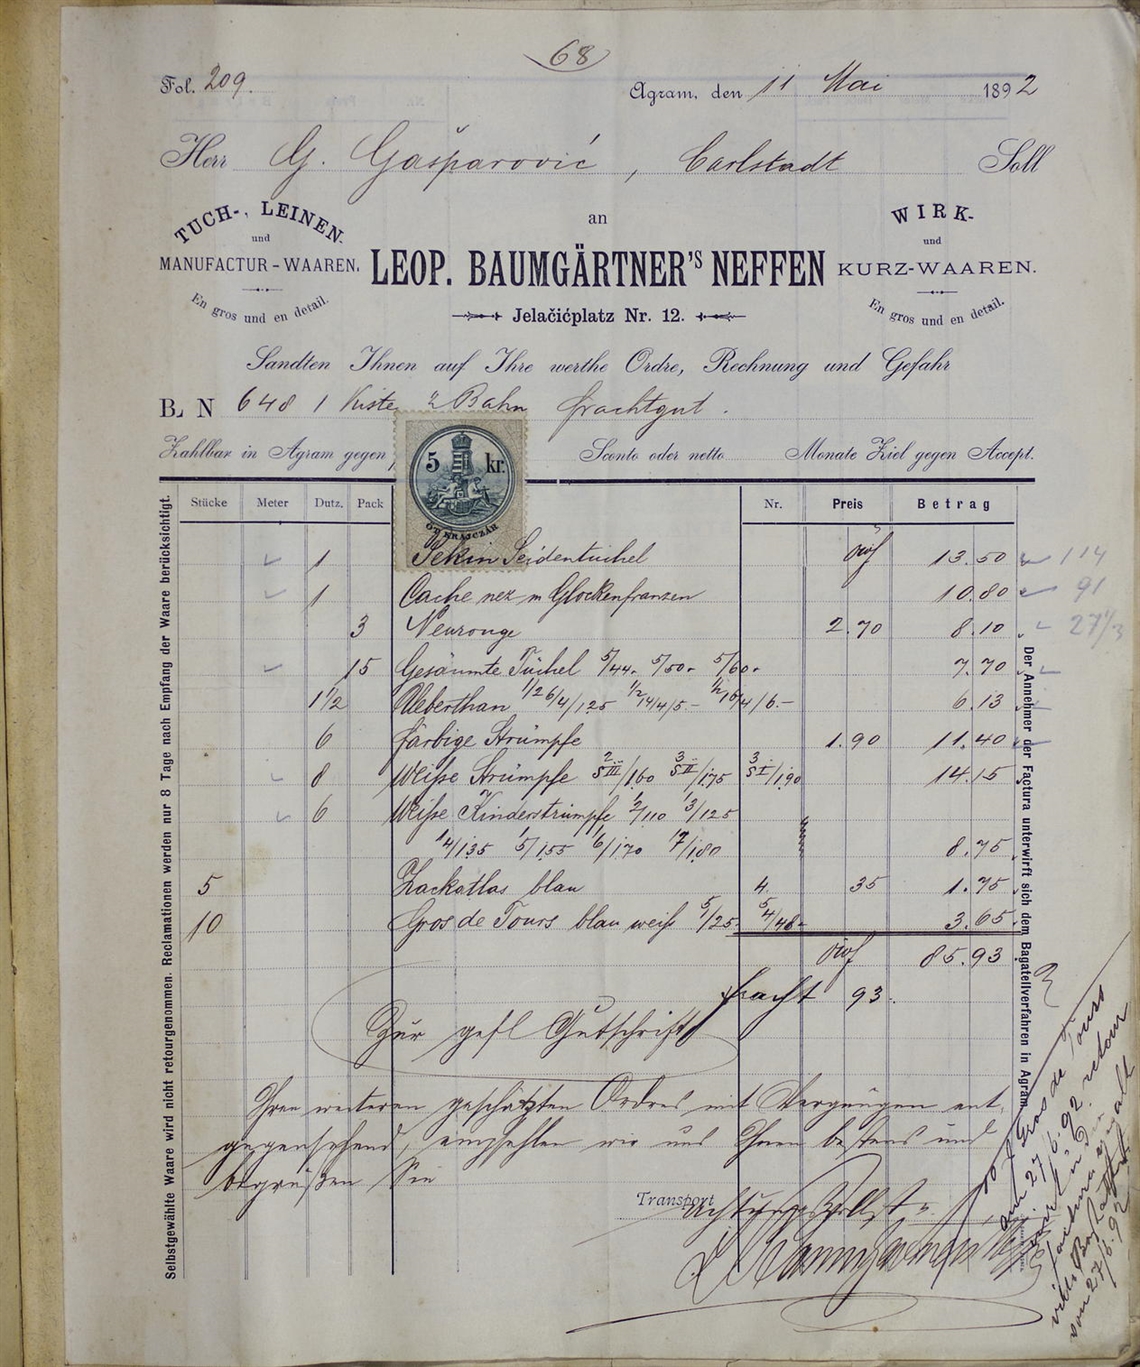 68
Fol. 209.
Agram, den 11 Mai 1892
Herr G. Gašparović, Carlstadt Soll
an
TUCH-, LEINEN-
und
MANUFACTUR-WAAREN.
En gros und en detail.
LEOP. BAUMGÄRTNER'S NEFFEN
Jelačićplatz Nr. 12.
WIRK-
und
KURZ-WAAREN.
En gros und en detail.
Sandten Ihnen auf Ihre werthe Ordre, Rechnung und Gefahr
B. N 648 1 Kiste Bahn frachtgut.
Zahlbar in Agram gegen Sconto oder netto Monate Ziel gegen Accept.
5 kr.
ÖT KRAJCZÁR
Stücke Meter Dutz. Pack Nr. Preis Betrag
1 Pekin Seidentüchel 13.50 114
1 Cache nez m Glockenfransen 10.80 91
3 Neurouge 2.70 8.10 27 1/3
15 Gesäumte Tüchel 5/44.- 5/50.- 5/60.- 7.70
1 1/2 6.13
6 färbige Strümpfe 1.90 11.40
8 Weiße Strümpfe 14.15
6 Weiße Kinderstrümpfe 1/2/110 1/3/125
1/4/135 1/5/155 1/6/170 1/7/180 8.75
5 Zackatlas blau 4. 35 1.75
10 Gros de Tours blau weiß 5/25 5/4/48- 3.65
85.93
fracht 93.
Zur gefl Gutschrift
Ihren weiteren geschätzten Ordres mit Vergnügen ent-
gegensehend, empfehlen wir uns Ihnen bestens und
begrüßen Sie
Transport
Achtungsvollst
Selbstgewählte Waare wird nicht retourgenommen. Reclamationen werden nur 8 Tage nach Empfang der Waare berücksichtigt.
Der Annehmer der Factura unterwirft sich dem Bagatellverfahren in Agram
Gros de Tours
am 27/6.92 retour
von 27/6.92